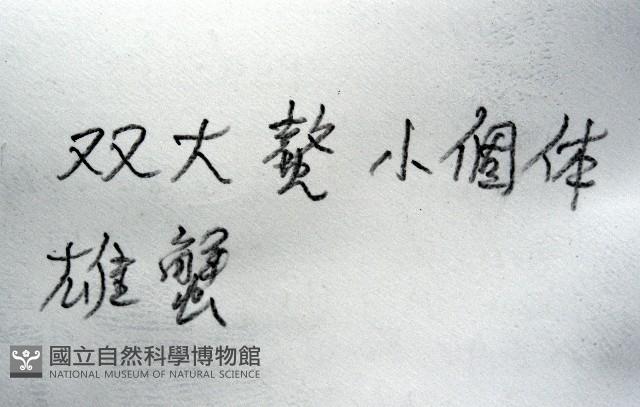 双大螯小個体
雄蟹
國立自然科學博物館
NATIONAL MUSEUM OF NATURAL SCIENCE